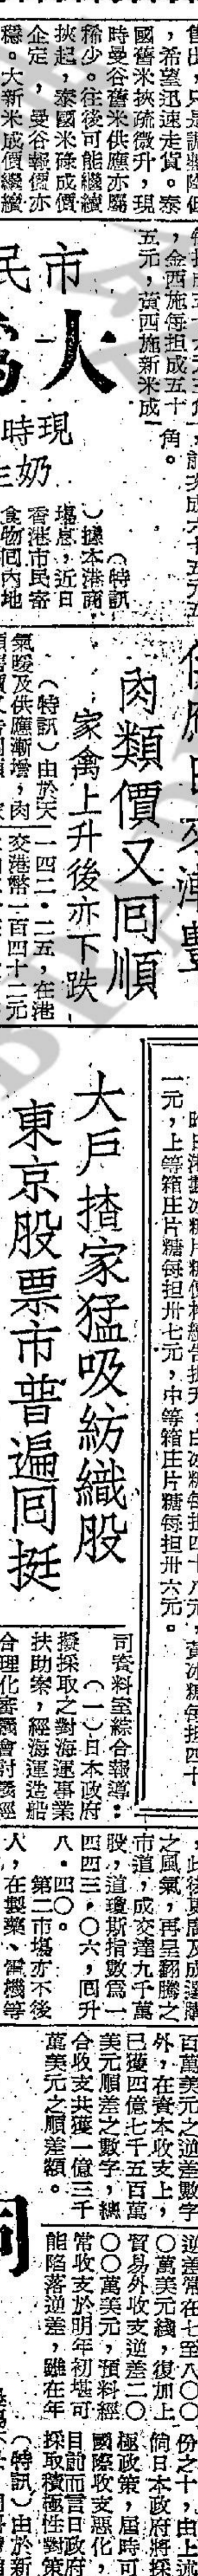 ，希望迅速走貨。泰
國舊米挾疏微升，現
時曼谷舊米供應亦屬
稀少。往後可能繼續
挾起，泰國米碌成價
企定，曼谷報價亦
穩。大新米成價繼續
，金西施每担成五十
五元，當西施新米成
角。
市
民
人
現
時
奶
（特訊
）據本港商
塲息，近日
香港市民寄
食物囘內地
肉類價又囘順
家禽上升後亦下跌
（特訊）由於天
氣暖及供應漸增，肉
一四二・二五，在港
交港幣一百四十二元
一元，上等箱庄片糖每担卅七元，中等箱庄片糖每担卅六元。
大戶揸家猛吸紡織股
東京股票市普遍囘挺
司資料室綜合報導：
（一）日本政府
擬採取之對海運事業
扶助案，經海運造船
合理化審議會討議經
，此後東居及成選購
之風氣，再呈翻騰之
市道，成交達九千萬
股，道瓊斯指數爲一
四四三・〇六，囘升
八・四〇。
第二市塲亦不後
人，在製藥、電機等
百萬美元之逆差數字
外，在資本收支上，
已獲四億七千五百萬
美元順差之數字，總
合收支共獲一億三千
萬美元之順差額。
逆差常在七至八〇〇
〇萬美元綫，復加上
貿易外收支逆差二〇
〇〇萬美元，預料經
常收支於明年初堪可
能陷落逆差，雖在年
份之十，由上述
倘日本政府將採
極政策，屆時可
國際收支惡化，
目前而言日政府
採取積極性對策
（特訊）由於新